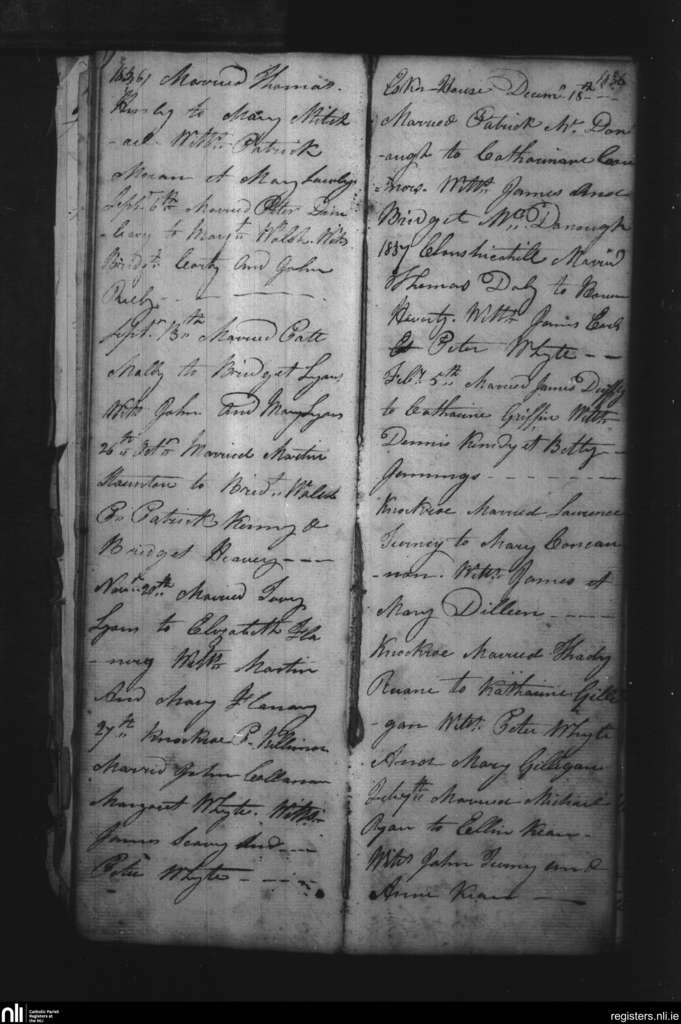 1836, Married Thomas
to Mary Mitch
-ael. Witts. Patrick
Moran et Mary
Sept. 6th Married Peter
to Margt. Walsh. Witts.
Bridgt. Carty And John
Sept. 13th Married Patt
Mally to Bridget Lyons
Witts John And Mary Lyons
26th Married Martin
Staunton to Bridt. Walsh
Ps. Patrick Kenny &
Bridget Heavey
Novr. 20th Married
Lyons to Elizabeth Fla
-nery Witts. Martin
And Mary Flanary
27th Knockroe P. Killimor
Married John Callanan
Margaret Whyte. Witts.
James And
Peter Whyte
1836
Esker House Decemr. 18th
Married Patrick Mc. Don
-ough to Catharinane
Witts. James And
Bridget Mc. Donough
1837 Married
Thomas Daly to
Heverty. Witts. James
Et Peter Whyte
Feby. 5th Married James Duffy
to Catharine Griffin Witts.
Dennis et Betty
Jennings
Knockroe Married Lawrence
Tierney to Mary Concan
-non. Witts. James et
Mary Dilleen
Knockroe Married Thady
Ruane to Katharine Gilli
-gan Witts. Peter Whyte
And Mary Gilligan
Married Michael
Ryan to Ellin Kean
Witts John Tierney and
Anne Kean
nli
Catholic Parish
Registers at
the NLI
registers.nli.ie